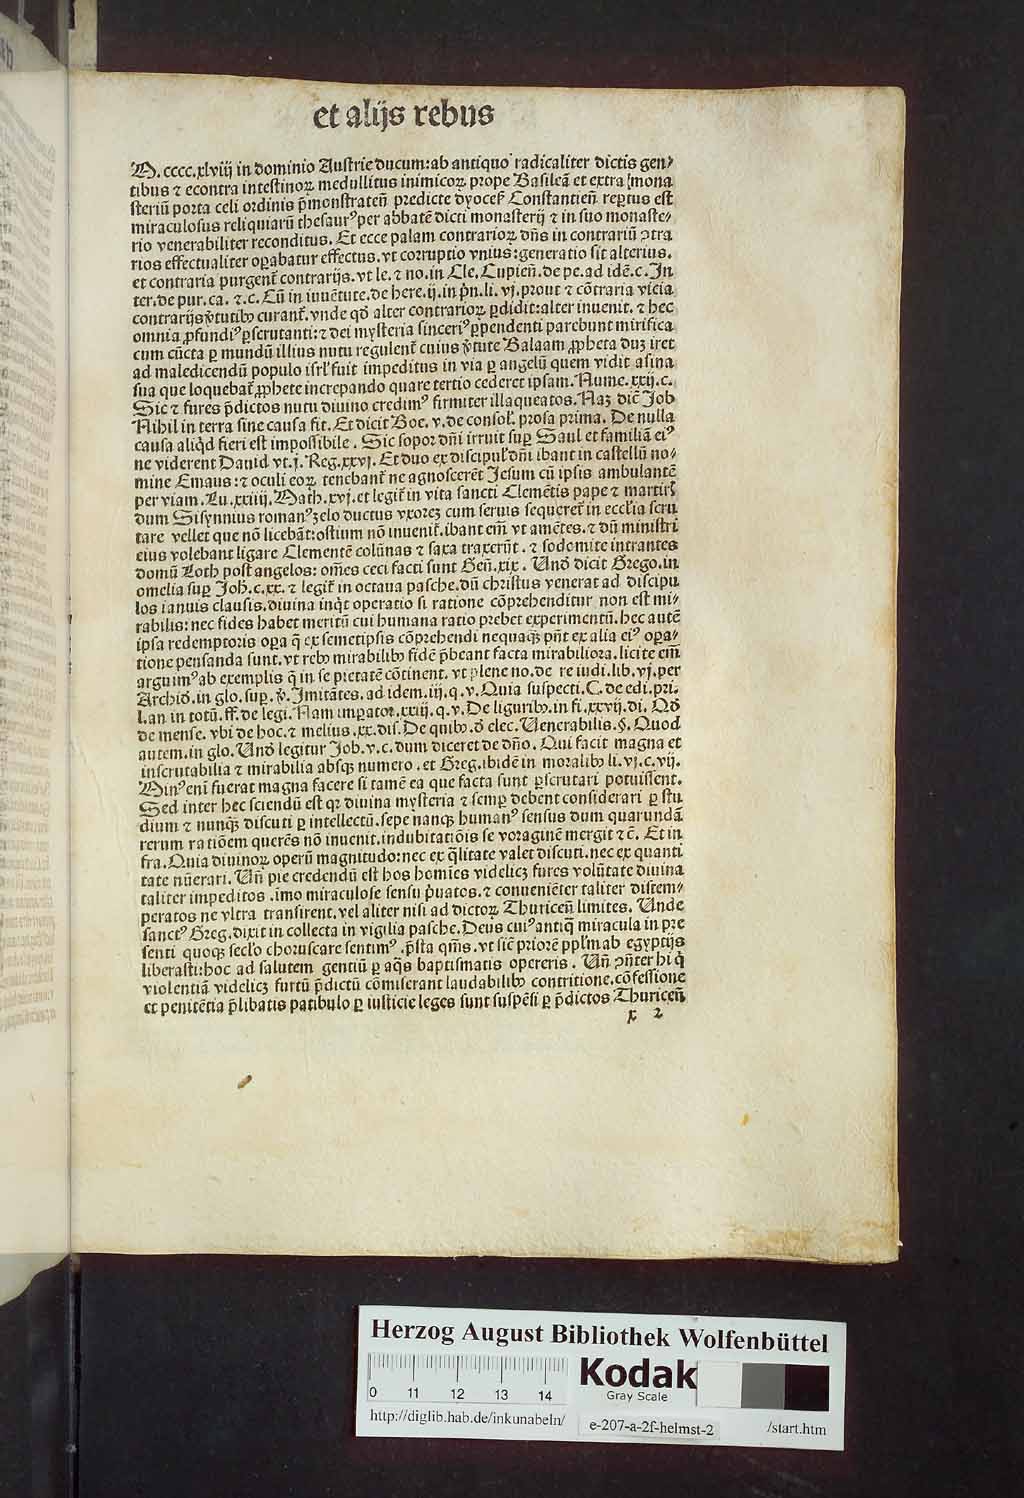 et alijs rebus
M.cccc.xlviij in dominio Austrie ducum:ab antiquo radicaliter dictis gen⸗
tibus ⁊ econtra intestinoꝝ medullitus inimicoꝝ prope Basileā et extra mona
steriū porta celi ordinis p̄monstrateñ predicte dyocesꝭ Constantieñ reꝑtus est
miraculosus reliquiarū thesaurꝰ per abbatē dicti monasterij ⁊ in suo monaste⸗
rio venerabiliter reconditus. Et ecce palam contrarioꝝ dn̄s in contrariū ꝯtra
rios effectualiter oꝑabatur effectus.vt corruptio vnius:generatio sit alterius.
et contraria purgent᷑ contrarijs.vt le.⁊ no.in Cle.Cupieñ.de pe.ad idē.c.In
ter.de pur.ca.⁊.c.Cū in iuuētute.de here.ij.in pn̄.li.vj.prout ⁊ cōtraria vicia
contrarijs v̓tutibꝫ curant᷑.vnde qd̓ alter contrarioꝝ ꝑdidit:alter inuenit.⁊ hec
omnia ꝓfundiꝰ ꝑscrutanti:⁊ dei mysteria sinceriꝰ ꝑpendenti parebunt mirifica
cum cūcta ꝑ mundū illius nutu regulent᷑ cuius v̓tute Balaam ꝓpheta duꝫ iret
ad maledicendū populo isrl̓ fuit impeditus in via ꝑ angelū quem vidit asina
sua que loquebat᷑ ꝓphete increpando quare tertio cederet ipsam.Nume.xxij.c.
Sic ⁊ fures p̄dictos nutu diuino credimꝰ firmiter illaqueatos.Naꝫ dic̄ Job
Nihil in terra sine causa fit.Et dicit Boe.v.de consol̓.prosa prima. De nulla
causa aliq̓d fieri est impossibile. Sic sopor dn̄i irruit suꝑ Saul et familiā eiꝰ
ne viderent Dauid vt.j.Reg.xxvj.Et duo ex discipul̓ dn̄i ibant in castellū no⸗
mine Emaus:⁊ oculi eoꝝ tenebant᷑ ne agnoscerēt Jesum cū ipsis ambulantē
per viam.Lu.xxiiij.Math.xvj.et legit᷑ in vita sancti Clemētis pape ⁊ martirꝭ
dum Sisynnius romanꝰ zelo ductus vxoreꝫ cum seruis sequeret᷑ in eccl̓ia scru
tare vellet que nō licebāt:ostium nō inuenit᷑.ibant em̄ vt amētes.⁊ dū ministri
eius volebant ligare Clementē colūnas ⁊ saxa traxerūt.⁊ sodomite intrantes
domū Loth post angelos:om̄es ceci facti sunt Geñ.xix. Vnd̓ dicit Grego.in
omelia suꝑ Joh.c.xx.⁊ legit᷑ in octaua pasche.dū christus venerat ad discipu
los ianuis clausis.diuina inq̓t operatio si ratione cōprehenditur non est mi⸗
rabilis:nec fides habet meritū cui humana ratio prebet experimentū.hec autē
ipsa redemptoris oꝑa q̄ ex semetipsis cōprehendi nequaqꝫ pn̄t ex alia eiꝰ oꝑa⸗
tione pensanda sunt.vt rebꝫ mirabilibꝫ fidē p̄beant facta mirabiliora.licite em̄
arguimꝰ ab exemplis q̄ in se pietatē cōtinent.vt plene no.de re iudi.lib.vj.per
Archid̓.in glo.suꝑ.v̓.Imitātes.ad idem.iij.q.v.Quia suspecti.C.de edi.pri.
l.an in totū.ff.de legi.Nam impator.xxiij.q.v.De liguribꝫ.in fi.xxvij.di. Qd̓
de mense.vbi de hoc.⁊ melius.xx.dis.De quibꝫ.d̓ elec. Venerabilis.§.Quod
autem.in glo.Vnd̓ legitur Job.v.c.dum diceret de dn̄o.Qui facit magna et
inscrutabilia ⁊ mirabilia absqꝫ numero.et Greg.ibidē in moralibꝫ li.vj.c.vij.
Minꝰ eni fuerat magna facere si tamē ea que facta sunt ꝑscrutari potuissent.
Sed inter hec sciendū est qꝛ diuina mysteria ⁊ semꝑ debent considerari ꝑ stu
dium ⁊ nunqꝫ discuti ꝑ intellectū.sepe nanqꝫ humanꝰ sensus dum quarundā
rerum ratiōem querēs nō inuenit.indubitatiōis se voraginē mergit ⁊c̄. Et in
fra.Quia diuinoꝝ operū magnitudo:nec ex q̄litate valet discuti.nec ex quanti
tate nūerari. Vn̄ pie credendū est hos homīes videlicꝫ fures volūtate diuina
taliter impeditos.imo miraculose sensu p̓uatos.⁊ conueniēter taliter distem⸗
peratos ne vltra transirent.vel aliter nisi ad dictoꝝ Thuriceñ limites. Unde
sanctꝰ Greg.dixit in collecta in vigilia pasche.Deus cuiꝰ antiq̄ miracula in pre
senti quoqꝫ secl̓o choruscare sentimꝰ.p̄sta qm̄s.vt sic̄ priorē ppl̓m ab egyptijs
liberasti:hoc ad salutem gentiū ꝑ aq̄s baptismatis opereris. Vn̄ ꝯn̄ter hi q̓
violentiā videlicꝫ furtū p̄dictū cōmiserant laudabilibꝫ contritione.cōfessione
et penitētia p̄libatis patibulo ꝑ iusticie leges sunt suspēsi ꝑ p̄dictos Thuriceñ
x 2
Herzog August Bibliothek Wolfenbüttel
0 11 12 13 14
Kodak
Gray Scale
http://diglib.hab.de/inkunabeln/
e-207-a-2f-helmst-2
/start.htm